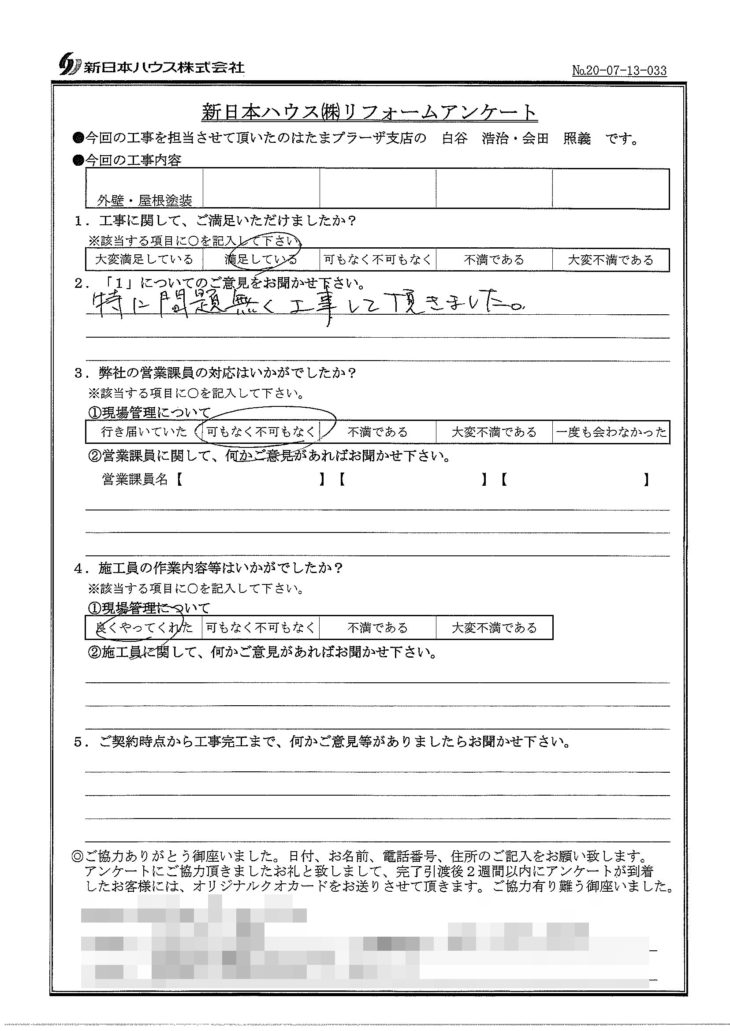 新日本ハウス株式会社
№20-07-13-033
新日本ハウス㈱リフォームアンケート
●今回の工事を担当させて頂いたのはたまプラーザ支店の 白谷 浩治・会田 照義 です。
●今回の工事内容
外壁・屋根塗装
1．工事に関して、ご満足いただけましたか？
※該当する項目に○を記入して下さい。
大変満足している 満足している 可もなく不可もなく 不満である 大変不満である
2．「1」についてのご意見をお聞かせ下さい。
特に問題無く工事して頂きました。
3．弊社の営業課員の対応はいかがでしたか？
※該当する項目に○を記入して下さい。
①現場管理について
行き届いていた 可もなく不可もなく 不満である 大変不満である 一度も会わなかった
②営業課員に関して、何かご意見があればお聞かせ下さい。
営業課員名【 】【 】【 】
4．施工員の作業内容等はいかがでしたか？
※該当する項目に○を記入して下さい。
①現場管理について
良くやってくれた 可もなく不可もなく 不満である 大変不満である
②施工員に関して、何かご意見があればお聞かせ下さい。
5．ご契約時点から工事完工まで、何かご意見等がありましたらお聞かせ下さい。
◎ご協力ありがとう御座いました。日付、お名前、電話番号、住所のご記入をお願い致します。
アンケートにご協力頂きましたお礼と致しまして、完了引渡後２週間以内にアンケートが到着
したお客様には、オリジナルクオカードをお送りさせて頂きます。ご協力有り難う御座いました。